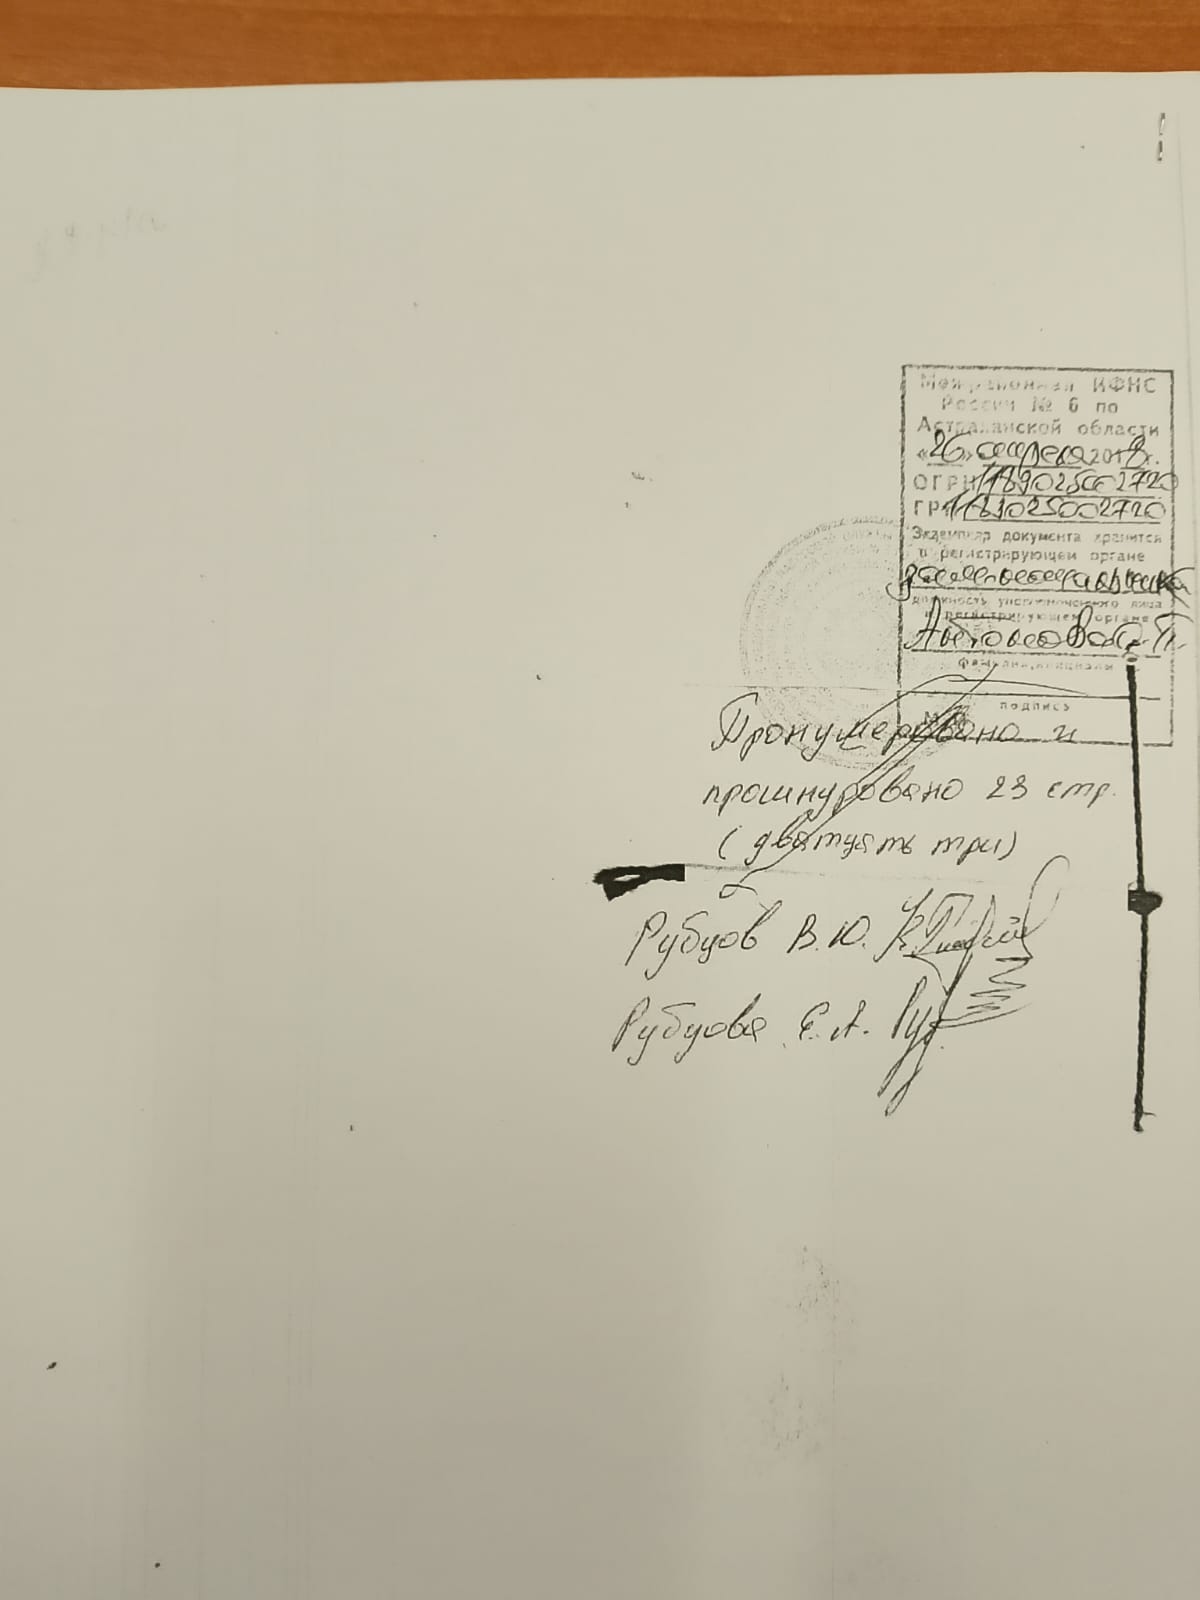 Межрайонная ИФНС
России № 6 по
Астраханской области
«26» февраля 2018 г.
ОГРН 1183025002720
ГРН 1183025002720
Экземпляр документа хранится
в регистрирующем органе
должность уполномоченного лица
в регистрирующем органе
фамилия, инициалы
подпись
М.П.
Пронумеровано и
прошнуровано 23 стр.
(двадцать три)
Рубцов В.Ю.
Рубцова Е.А.